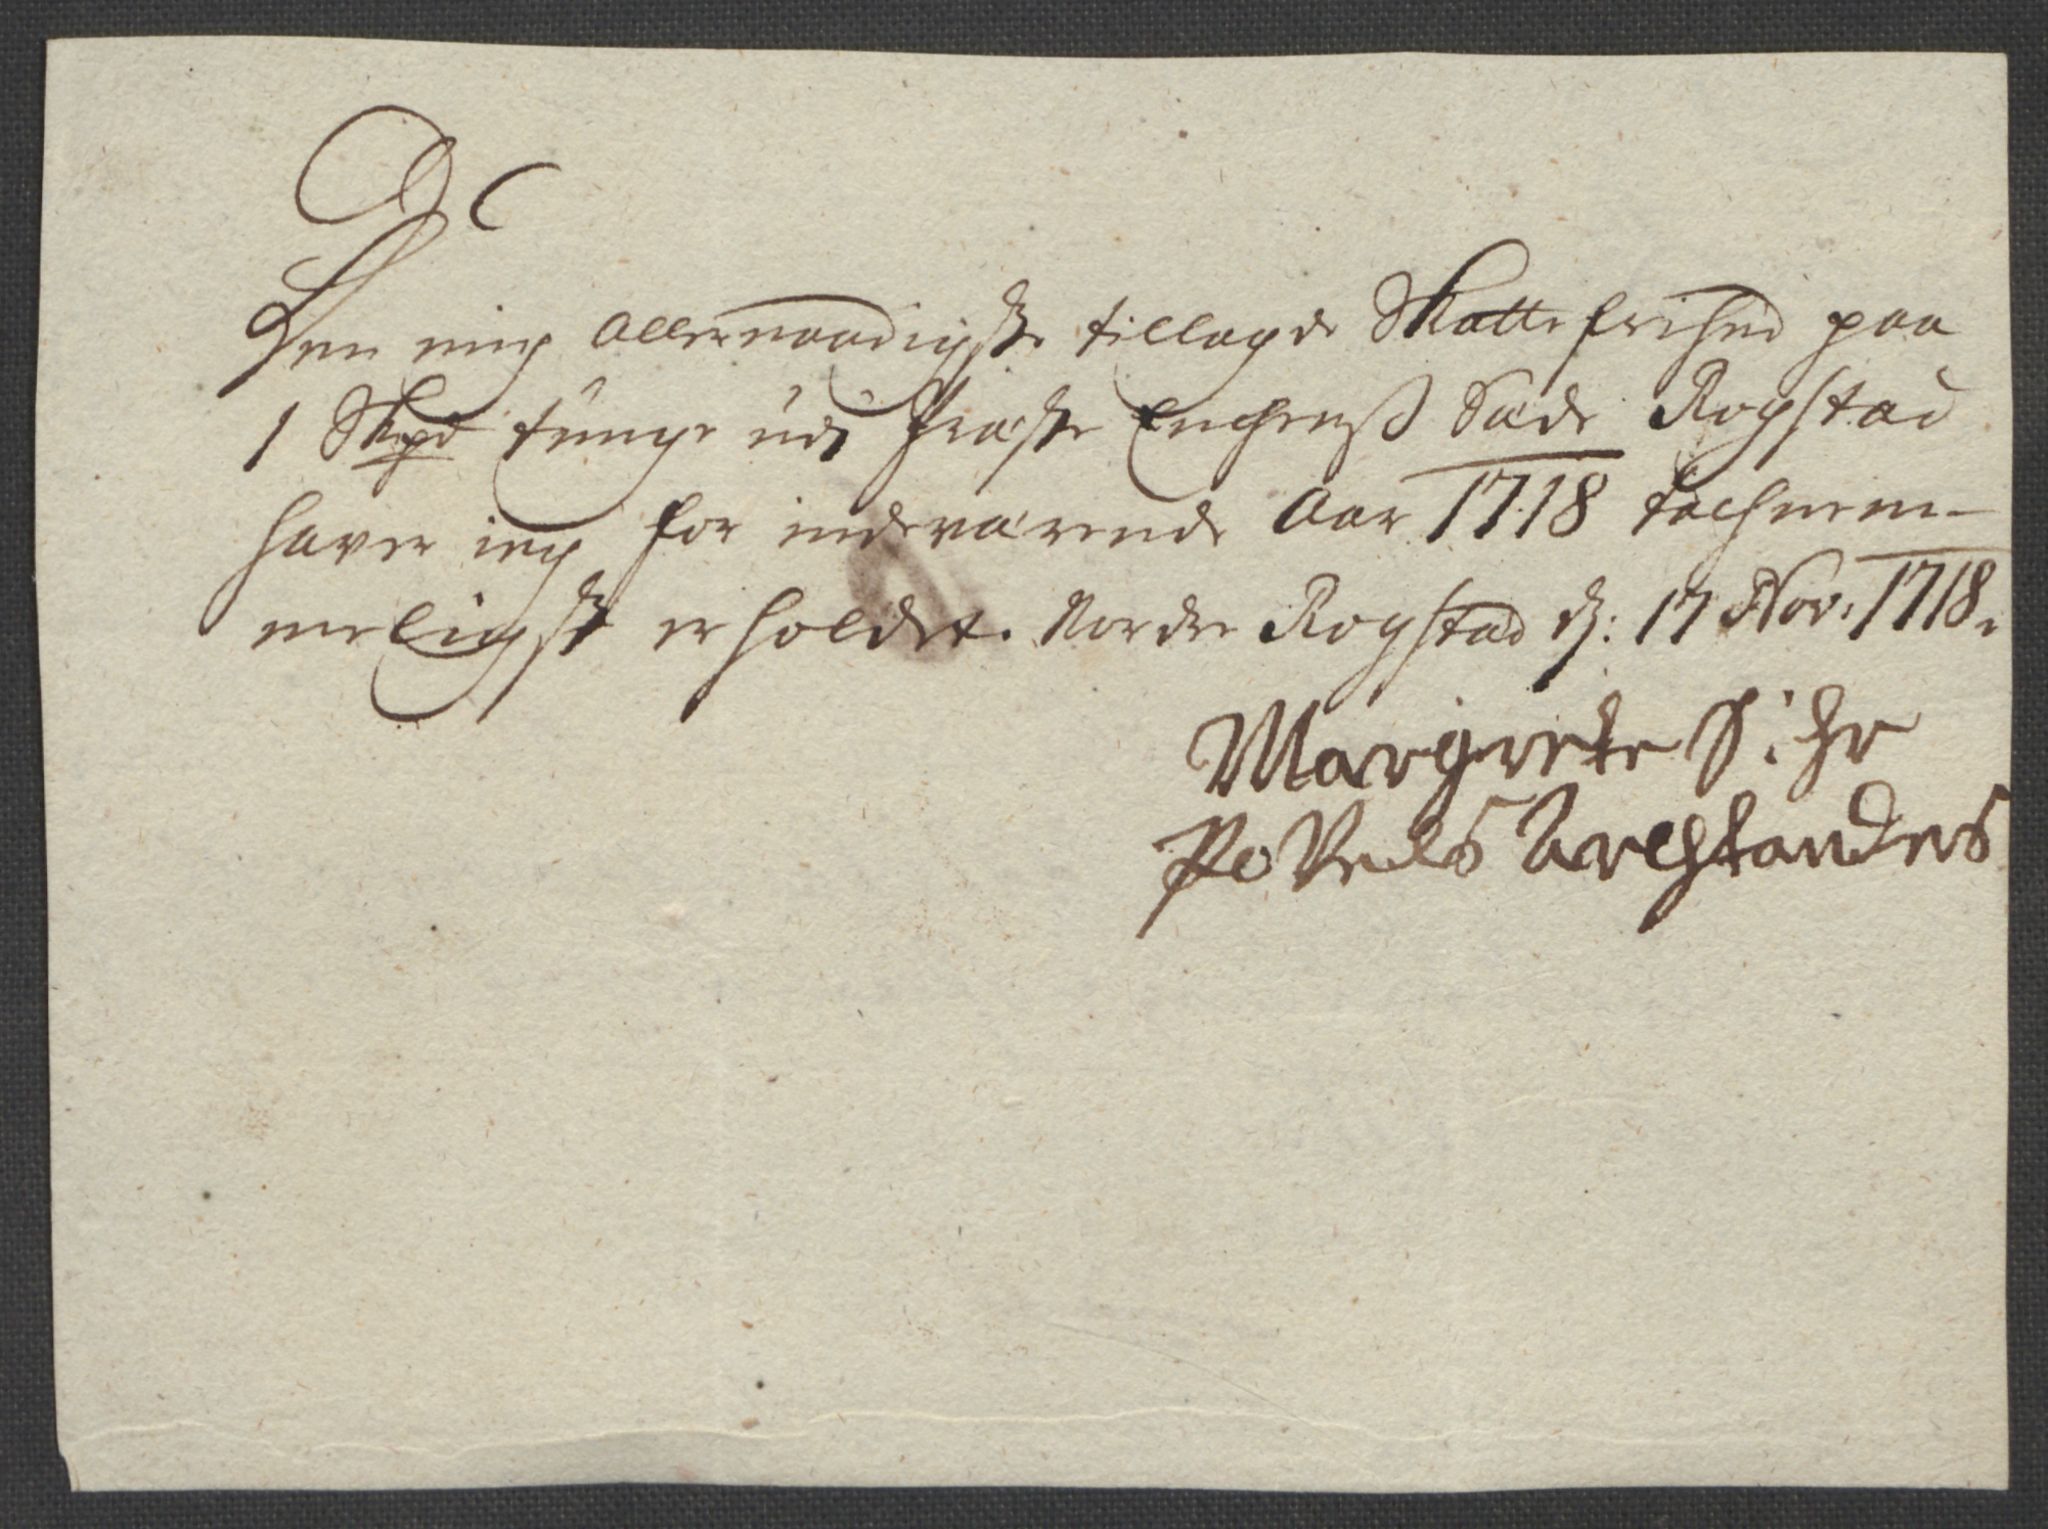 Den mig allernaadigste tillagde Skattefrihed paa
1 Skpd tünge udi Præste Enchens Sæde Rogstad
haver ieg for indeværende Aar 1718 tachnem-
meligst erholdet. Nordre Rogstad d: 17 Nov: 1718.
Margrete S: Hr
Povels